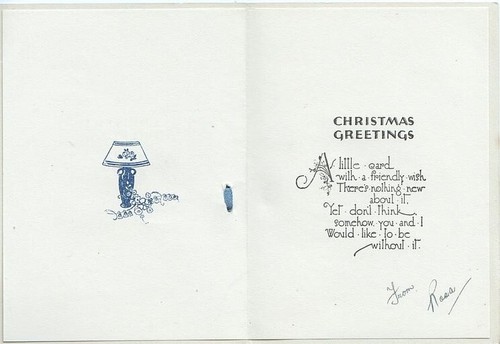 CHRISTMAS
GREETINGS
A little card
with a friendly wish
There's nothing new
about it.
Yet don't think
somehow you and I
Would like to be
without it.
From